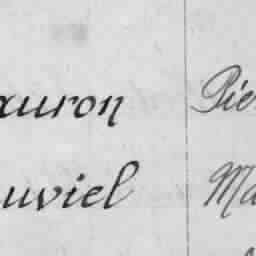 auron Pie
uviel Ma